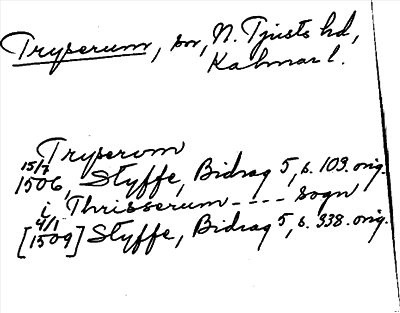 Tryserum, sn, N. Tjusts hd,
Kalmar l.
Tryserom
15/7
1506, Styffe, Bidrag 5, s. 109. orig.
i Thrisserum ---- sogn
4/1
[1509] Styffe, Bidrag 5, s. 338. orig.